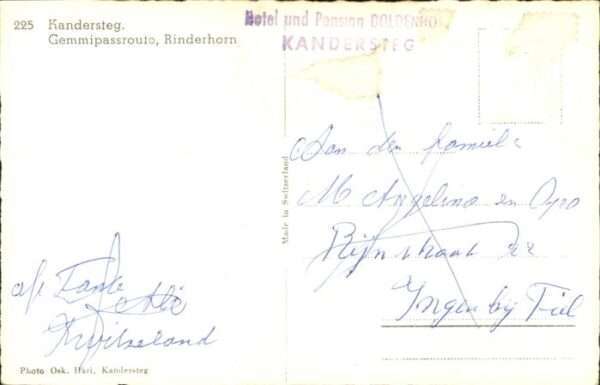 225 Kandersteg.
Gemmipassrouto, Rinderhorn
Hotel und Pension DOLDENHO
KANDERSTEG
Made in Switzerland
Aan den familie
M Angelino en Opa
Rijnstraat 22
Ingen bij Tiel
af. Tante
Alie
Zwitseland
Photo Osk. Hari, Kandersteg